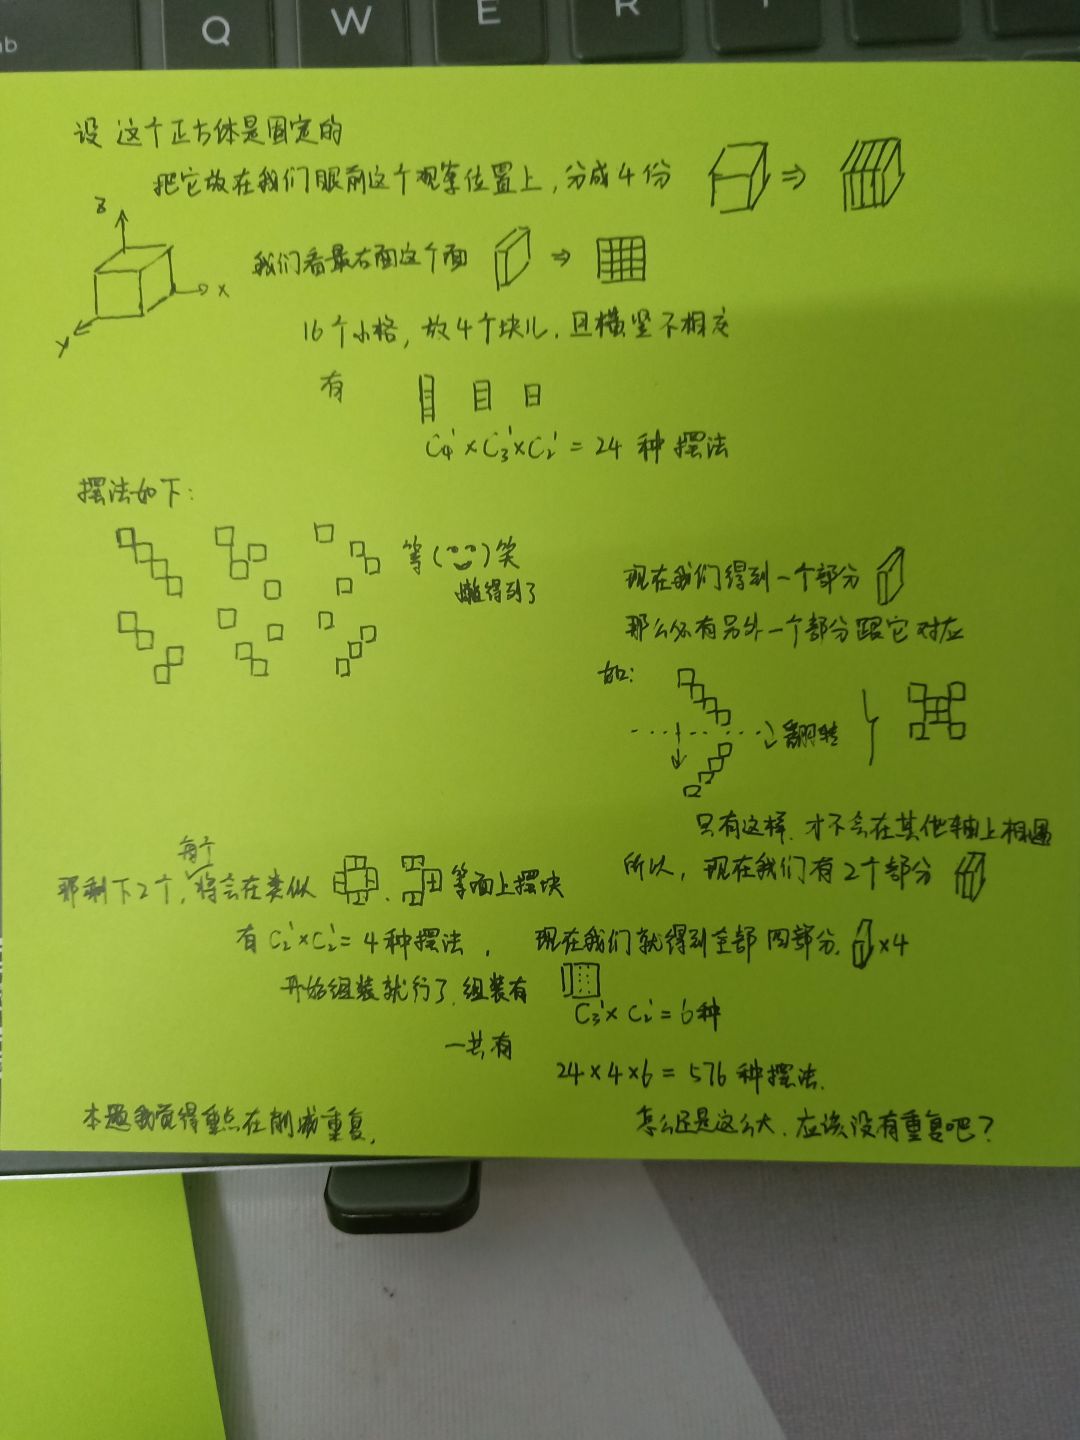 Q W E R
设 这个正方体是固定的
把它放在我们眼前这个观察位置上，分成4份
z
x
y
我们看最右面这个面
16个小格，放4个块儿，且横竖不相交
有
C₄¹×C₃¹×C₂¹=24 种 摆法
摆法如下：
等( )笑
懒得到了
现在我们得到一个部分
那么必有另外一个部分跟它对应
如：
翻转
只有这样，才不会在其他轴上相遇
所以，现在我们有2个部分
每个
那剩下2个，将会在类似 、 等面上摆块
有 C₂¹×C₂¹=4种摆法， 现在我们就得到全部四部分. ×4
开始组装就行了，组装有
C₃¹×C₂¹=6种
一共有
24×4×6=576 种摆法.
本题我觉得重点在削减重复.
怎么还是这么大，应该没有重复吧？